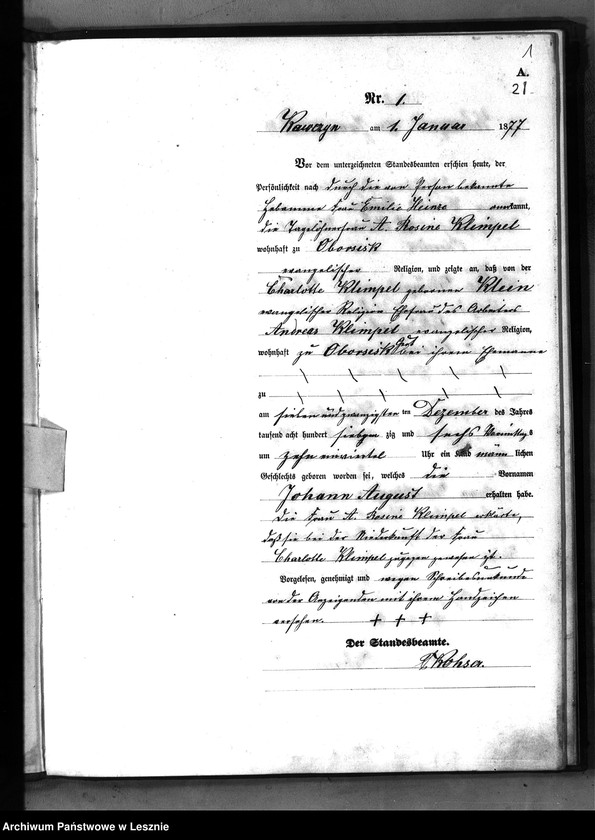 1
A.
21
Nr. 1.
Kawczyn am 1. Januar 1877
Vor dem unterzeichneten Standesbeamten erschien heute, der
Persönlichkeit nach durch die von Person bekannte
Hebamme Frau Emilie Heinze anerkannt,
die Tagelöhnerfrau A. Rosine Klimpel
wohnhaft zu Oborzisk
evangelischer Religion, und zeigte an, daß von der
Charlotte Klimpel geborenen Klein
evangelischer Religion Ehefrau des Arbeiters
Andreas Klimpel evangelischer Religion,
wohnhaft zu Oborzisk Gut bei ihrem Ehemanne
zu
am sieben und zwanzigsten ten Dezember des Jahres
tausend acht hundert siebzig zig und sechs Vormittags
um zehn einviertel Uhr ein Kind männlichen
Geschlechts geboren worden sei, welches die Vornamen
Johann August erhalten habe.
Die Frau A. Rosine Klimpel erklärte,
daß sie bei der Niederkunft der Frau
Charlotte Klimpel zugegen gewesen ist.
Vorgelesen, genehmigt und wegen Schreibensunkunde
von der Anzeigenden mit ihrem Handzeichen
versehen. + + +
Der Standesbeamte.
Archiwum Państwowe w Lesznie